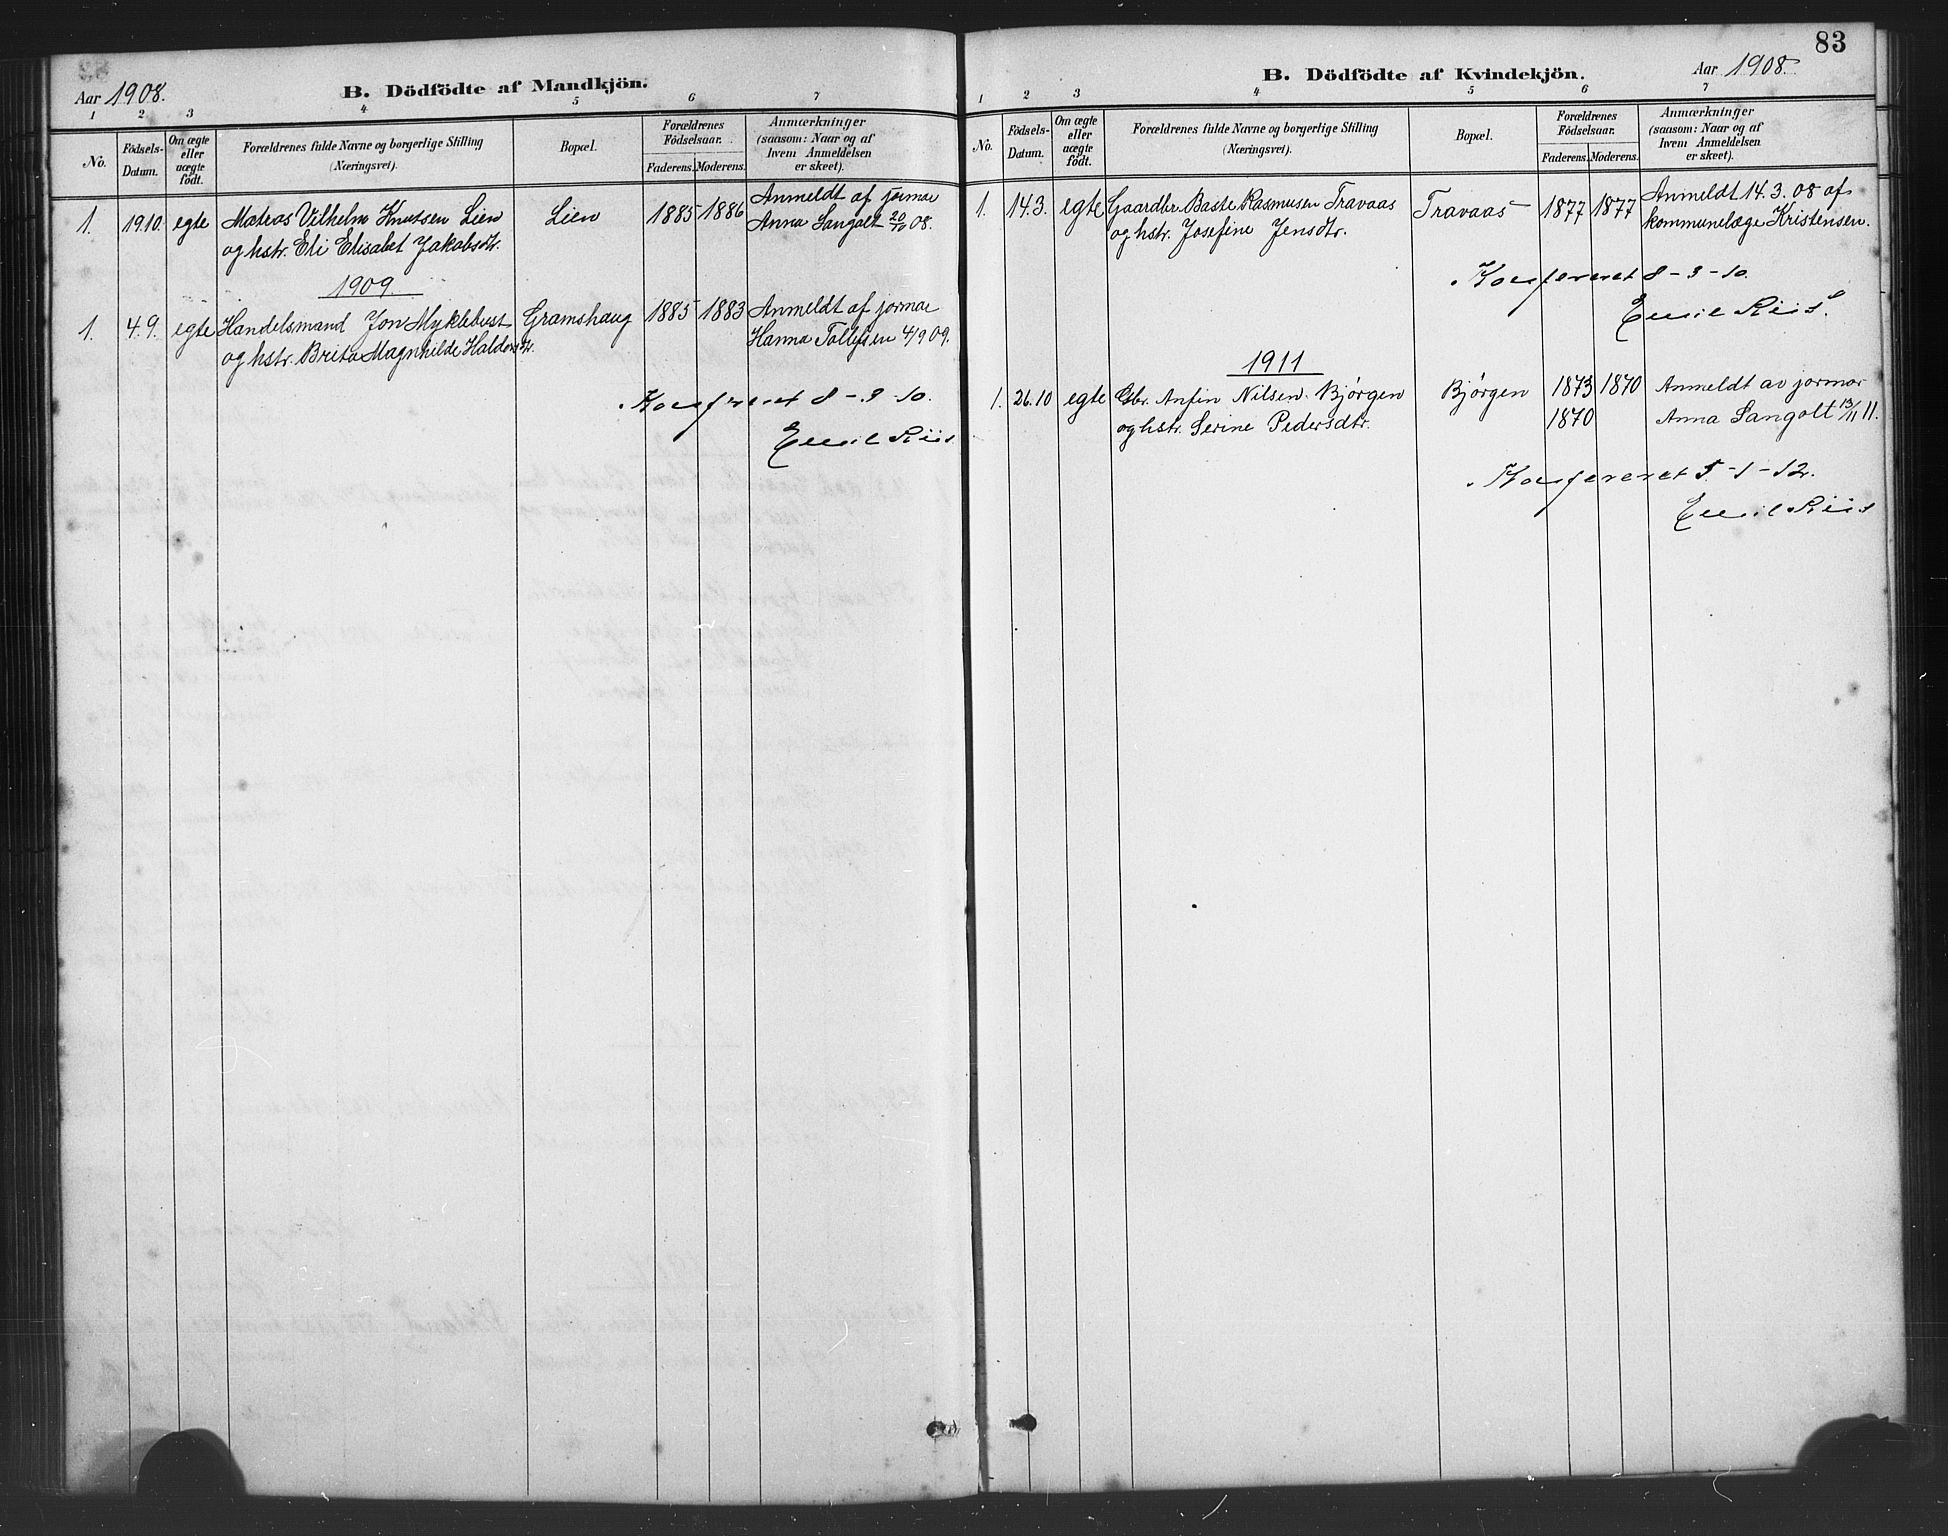 Aar 1908.
B. Dödfödte af Mandkjön.
1 2 3 4 5 6 7
No.
Födsels-Datum.
Om ægte eller uægte födt.
Forældrenes fulde Navne og borgerlige Stilling (Næringsvei).
Bopæl.
Forældrenes Födselsaar.
Faderens. Moderens.
Anmærkninger (saasom: Naar og af hvem Anmeldelsen er skeet).
1. 19.10. egte Mateas Vilhelm Knutsen Lien Lien 1885 1886 Anmeldt af jormor
og hstr. Eli Elisabet Jakobsdtr. Anna Langolt 20/10 08.
1909
1. 4.9. egte Handelsmand Jon Myklebust Gramshaug 1885 1883 Anmeldt af jormor
og hstr. Brita Magnhilde Haldorsdtr. Hanna Tollefsen 4/9 09.
Konfereret 8-3-10.
Emil Riis
83
B. Dödfödte af Kvindekjön.
Aar 1908.
1 2 3 4 5 6 7
No.
Födsels-Datum.
Om ægte eller uægte födt.
Forældrenes fulde Navne og borgerlige Stilling (Næringsvei).
Bopæl.
Forældrenes Födselsaar.
Faderens. Moderens.
Anmærkninger (saasom: Naar og af hvem Anmeldelsen er skeet).
1. 14.3. egte Gaardbr. Baste Rasmusen Travaas Travaas 1877 1877 Anmeldt 14.3.08 af
og hstr. Josefine Jensdtr. kommunelæge Kristensen.
Konfereret 8-3-10.
Emil Riis.
1911
1. 26.10 egte Gbr. Anfin Nilsen Bjørgen Bjørgen 1873 1870 Anmeldt av jormor
og hstr. Serine Pedersdtr. 1870 Anna Langolt 13/11 11.
Konfereret 5-1-12.
Emil Riis